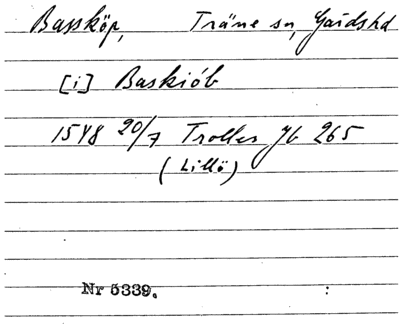 Bassköp, Träne sn, Gärds hd
[i] Baskiób
1548 20/7 Trolles Jb 265
(Lillö)
Nr 5339.